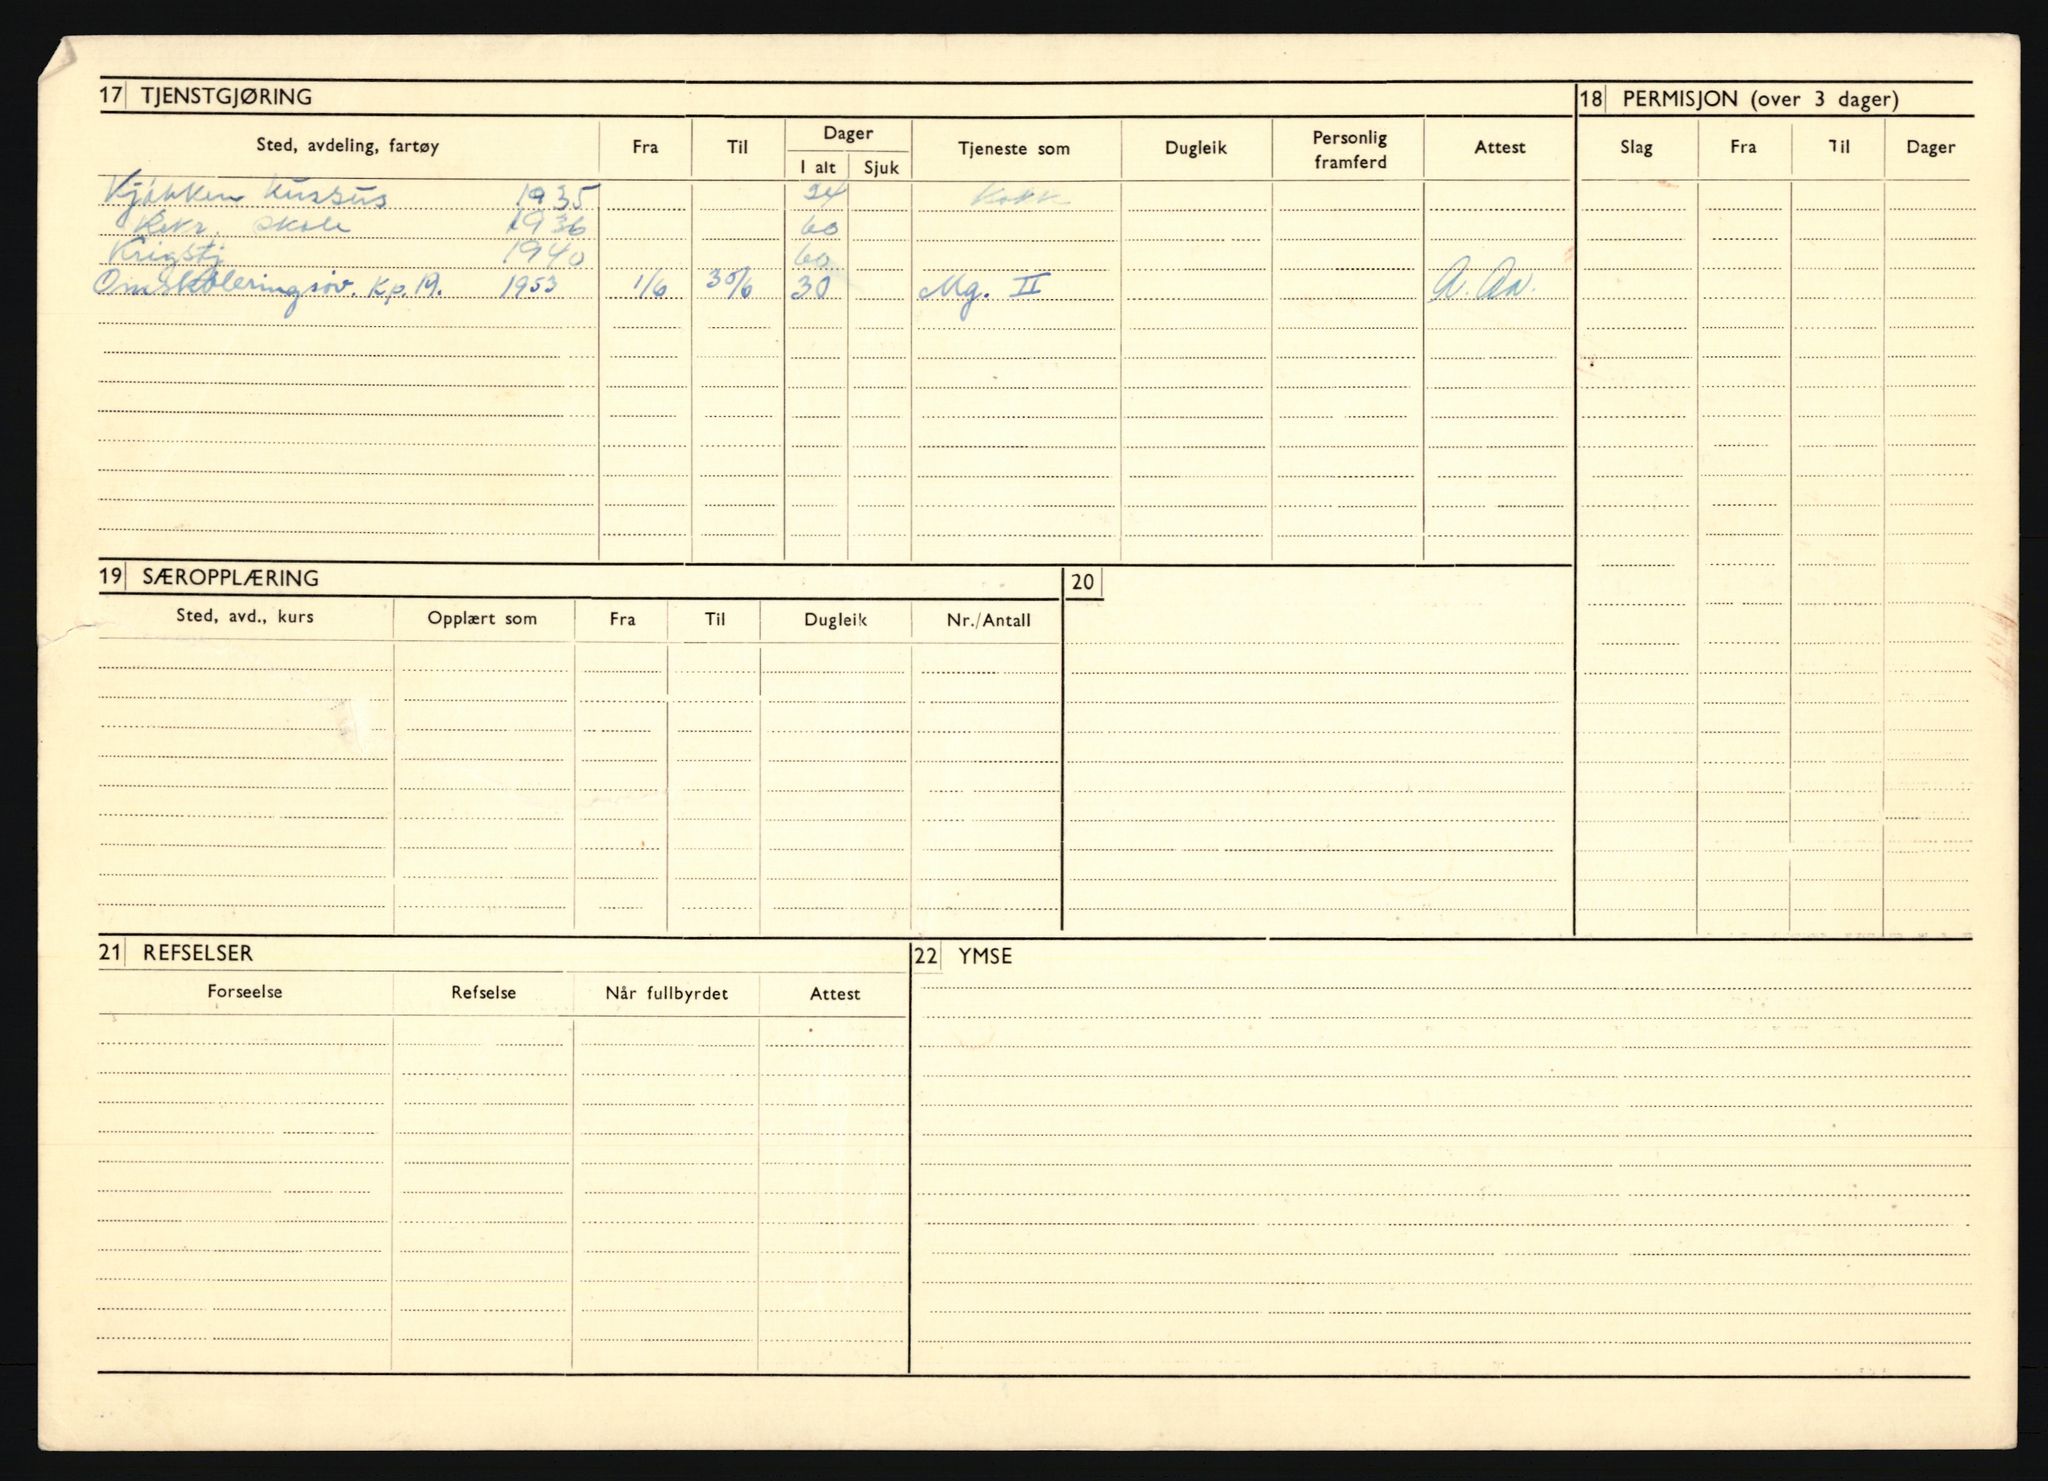 17 TJENSTGJØRING
18 PERMISJON (over 3 dager)
Sted, avdeling, fartøy Fra Til Dager Tjeneste som Dugleik Personlig framferd Attest Slag Fra Til Dager
I alt Sjuk
Kjøkken kursus 1935 24 Kokk
Rekr. skole 1936 60
Krigstj 1940 60
Omskoleringsøv. Kp. M. 1953 1/6 30/6 30 Mg. II A. Aa.
19 SÆROPPLÆRING
20
Sted, avd., kurs Opplært som Fra Til Dugleik Nr./Antall
21 REFSELSER
22 YMSE
Forseelse Refselse Når fullbyrdet Attest